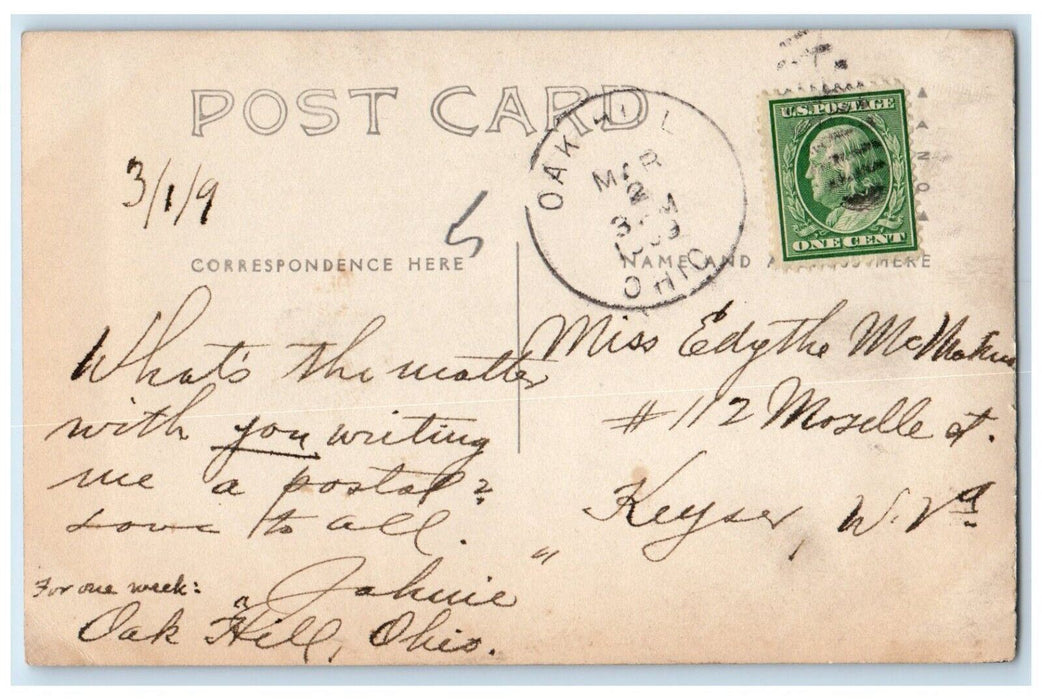 POST CARD
3/1/9
OAK HILL
MAR
2
3 PM
1909
OHIO
U.S. POSTAGE
ONE CENT
CORRESPONDENCE HERE
NAME AND HERE
What's the matter
with you writing
me a postal?
Love to all.
"Johnie"
For one week:
Oak Hill, Ohio.
Miss Edythe
#112 Mozelle St.
Keyser, W. Va